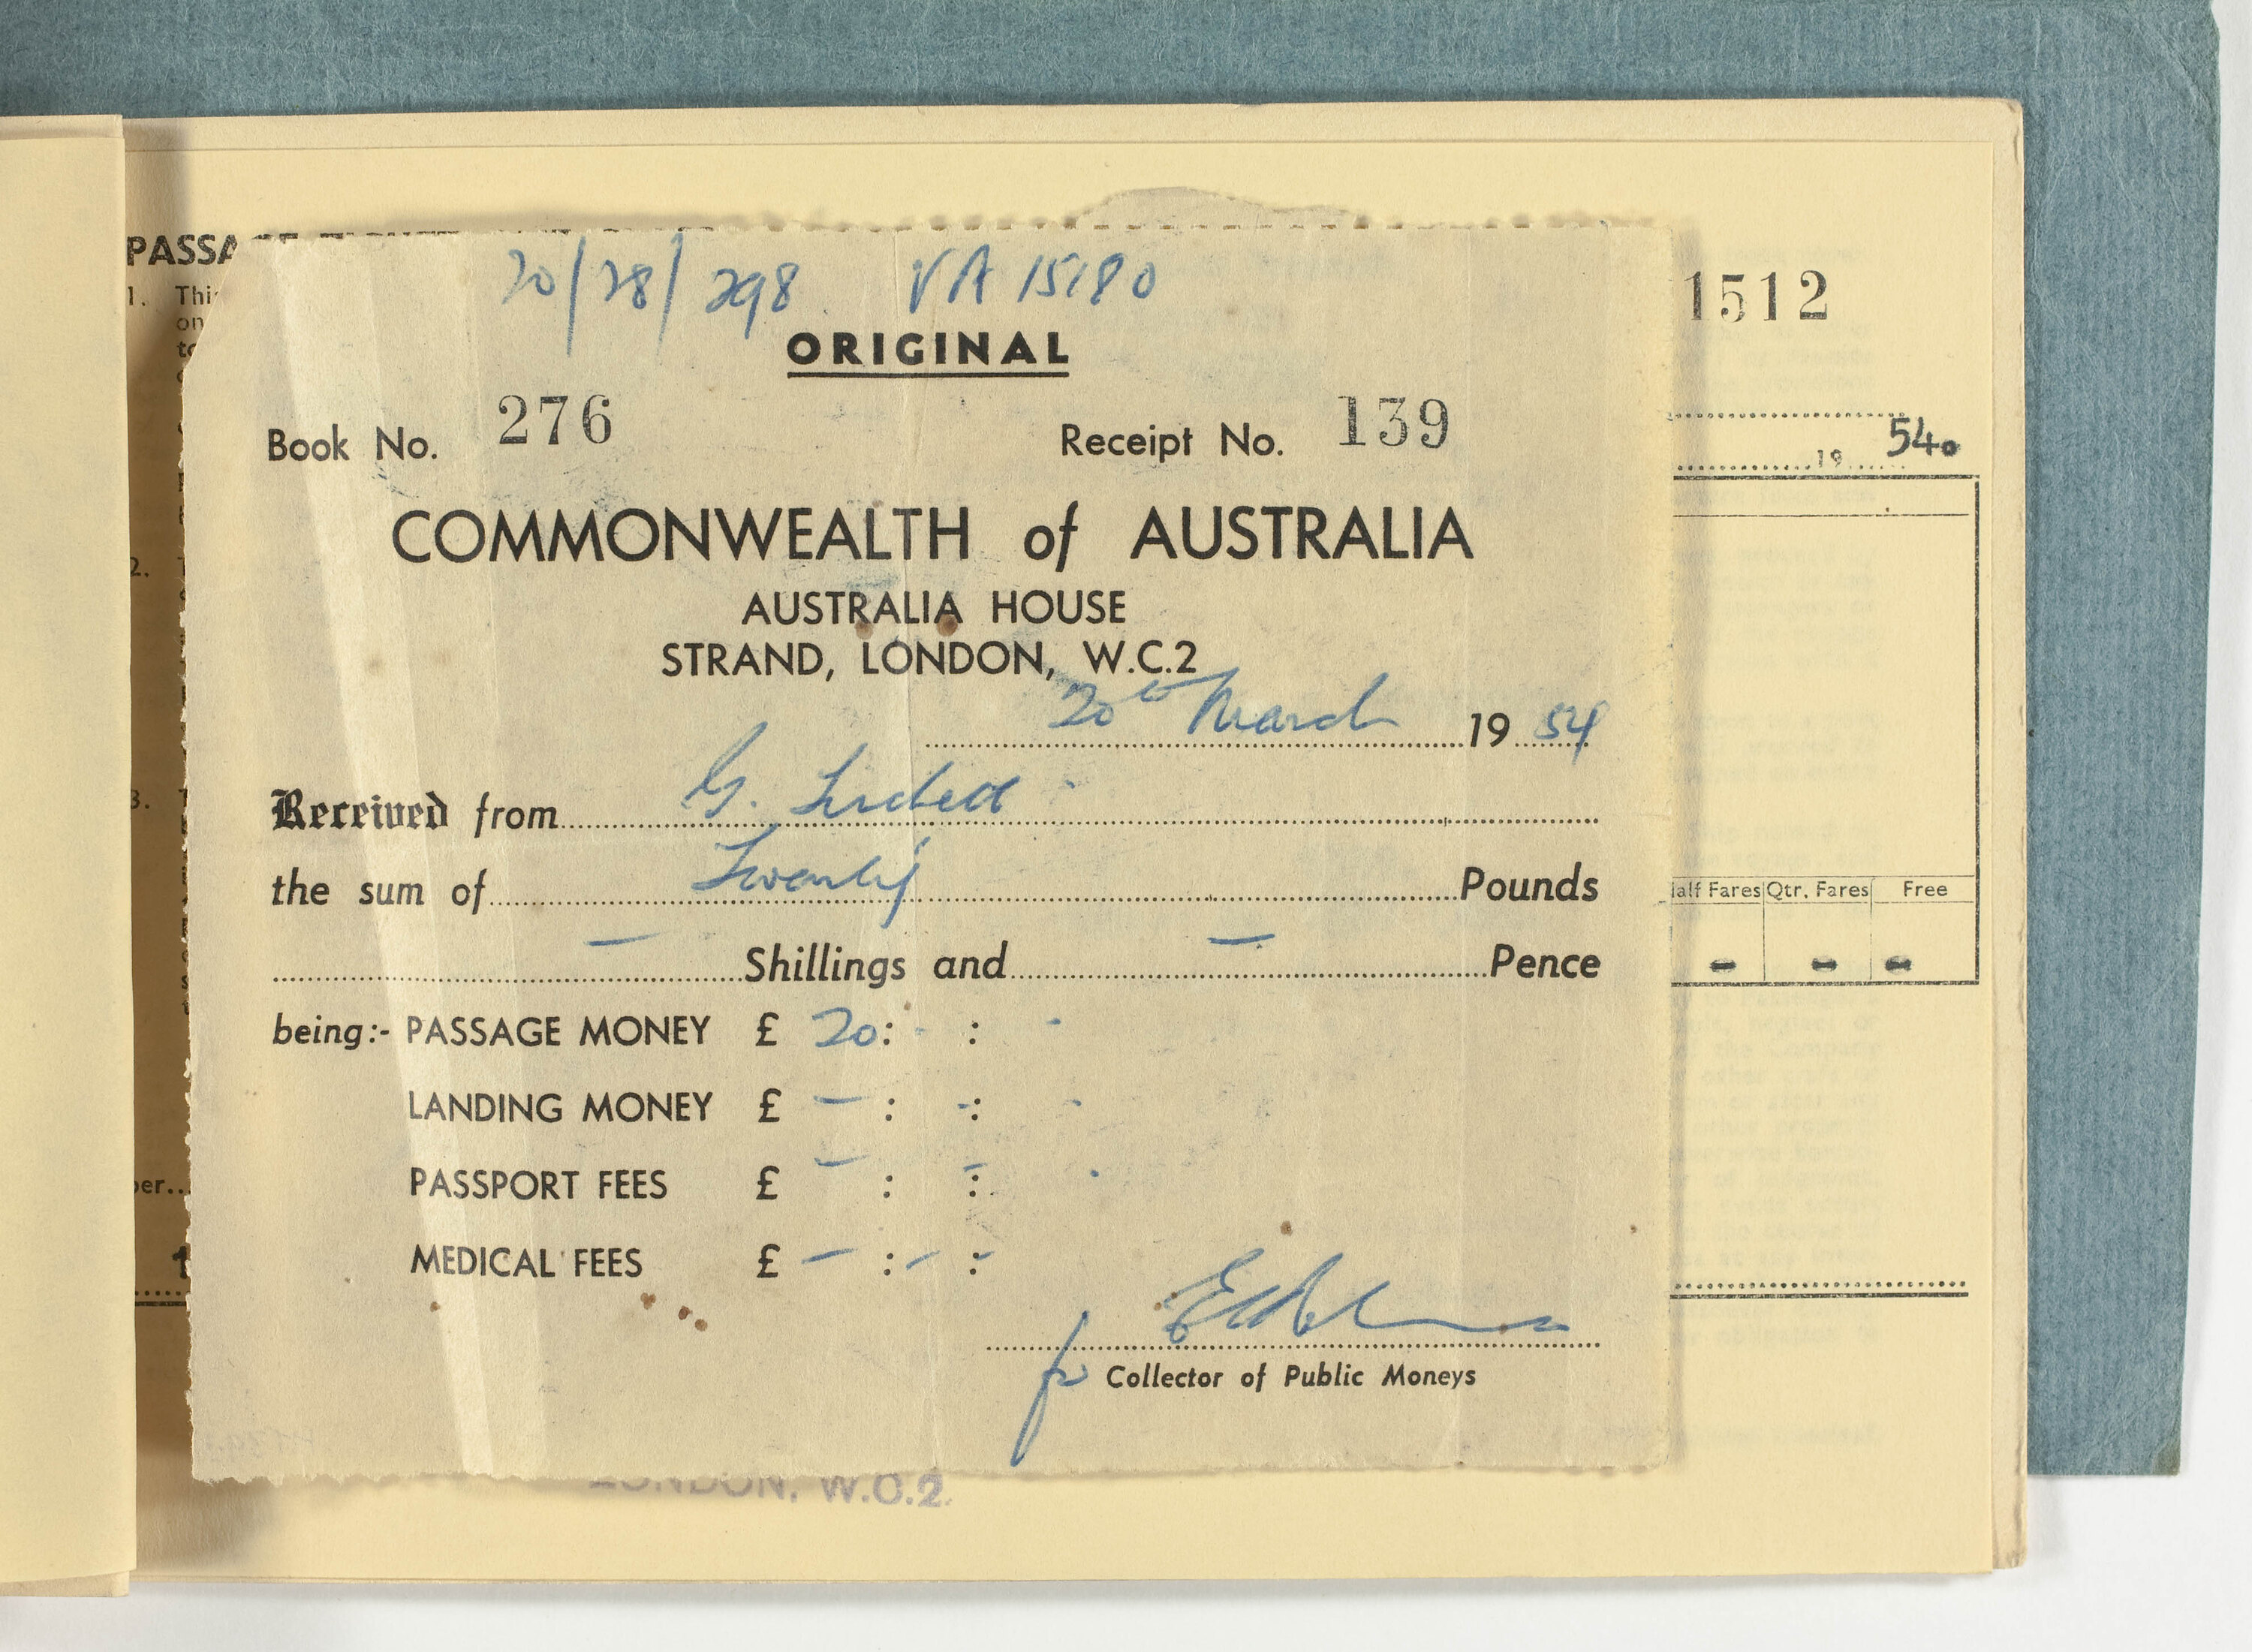 PASSA
1. Thi
on
to
20/28/298 VA 15180
ORIGINAL
1512
Book No. 276 Receipt No. 139
540
19
COMMONWEALTH of AUSTRALIA
AUSTRALIA HOUSE
STRAND, LONDON, W.C.2
2.
20th March 1954
3.
Received from G.
the sum of Twenty Pounds
alf Fares Qtr. Fares Free
— Shillings and — Pence
- - -
being:- PASSAGE MONEY £ 20: - : -
LANDING MONEY £ - : - : -
PASSPORT FEES £ - : - : -
per..
MEDICAL FEES £ - : - : -
for Collector of Public Moneys
LONDON. W.C.2.